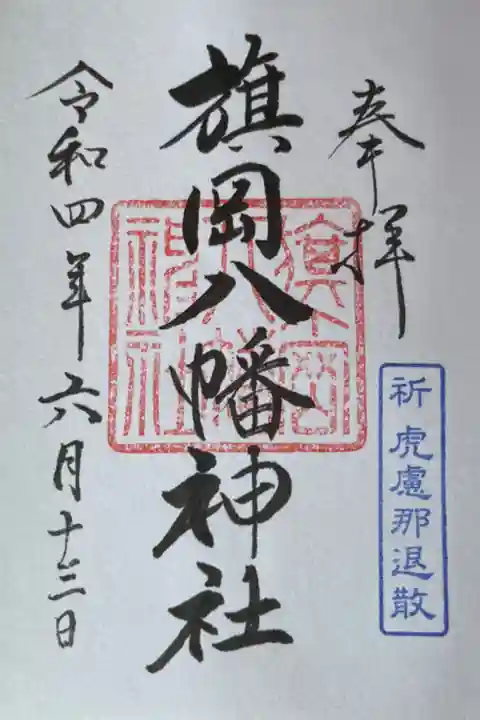 奉拝
祈虎慮那退散
旗岡八幡神社
旗岡八幡神社
令和四年六月十三日